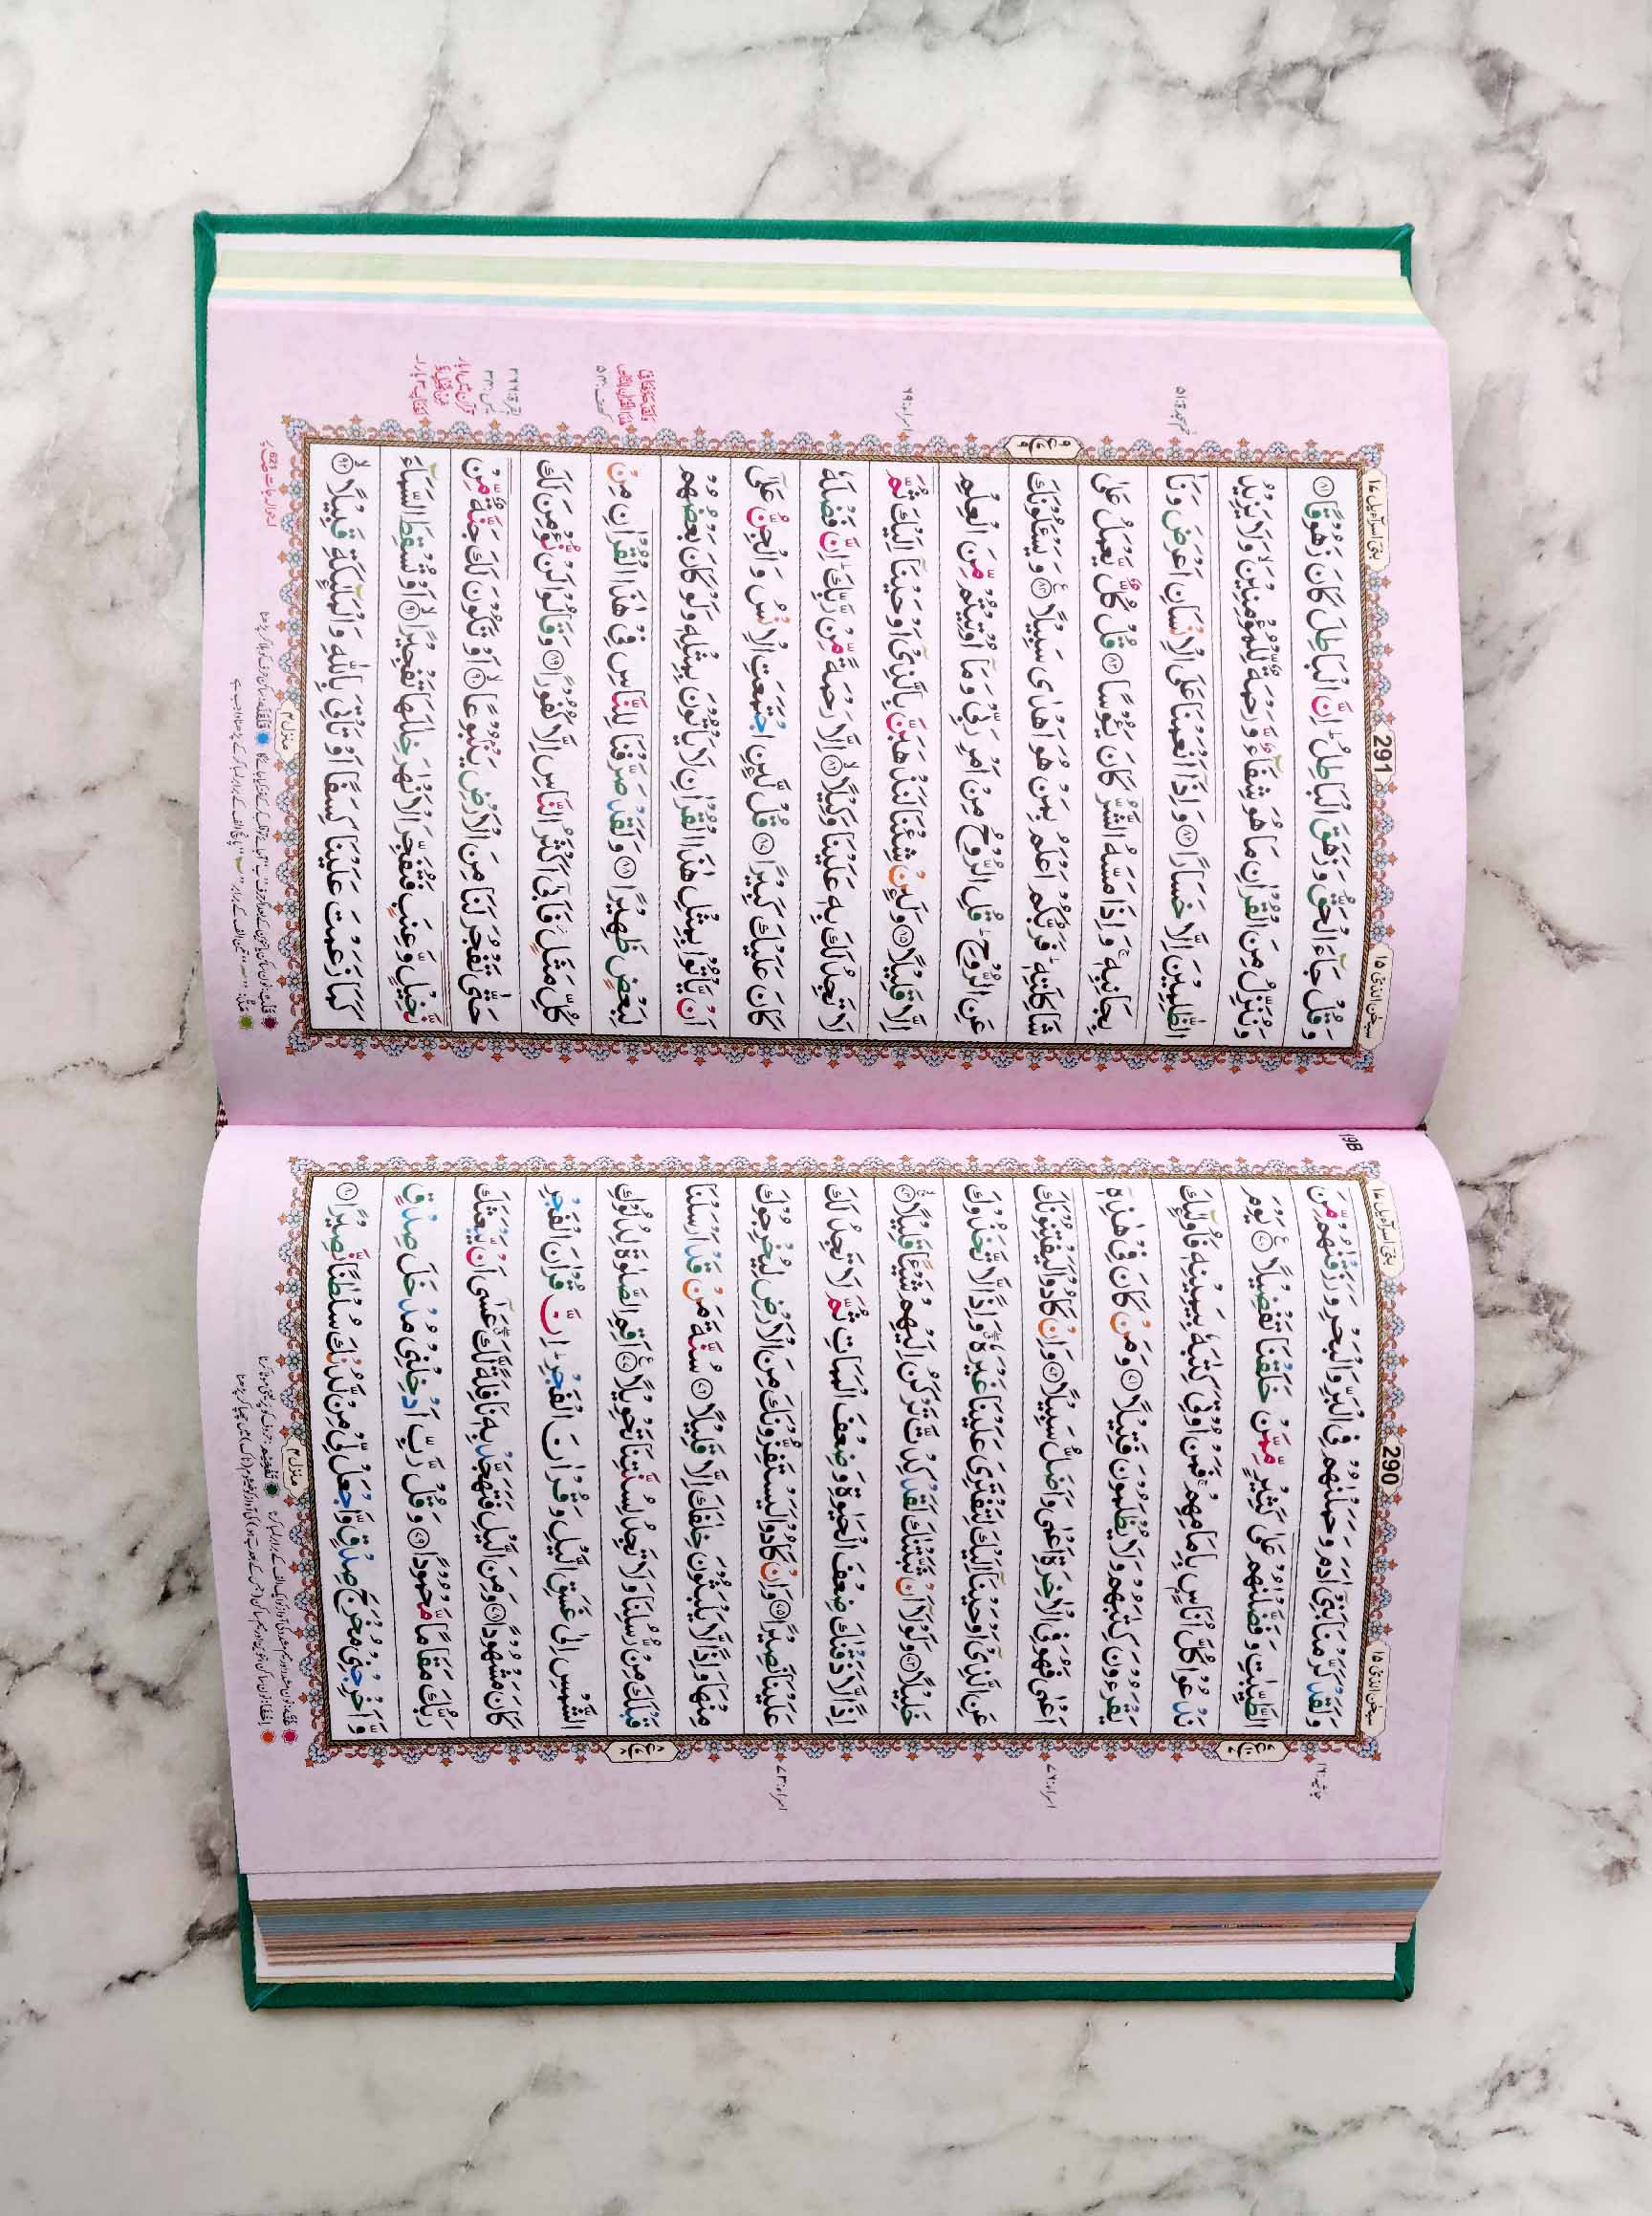 سبحن الذی ۱۵
290
بنی اسرآءیل ۱۷
وَلَقَدْ كَرَّمْنَا بَنِيْٓ اٰدَمَ وَحَمَلْنٰهُمْ فِي الْبَرِّ وَالْبَحْرِ وَرَزَقْنٰهُمْ مِّنَ
الطَّيِّبٰتِ وَفَضَّلْنٰهُمْ عَلٰى كَثِيْرٍ مِّمَّنْ خَلَقْنَا تَفْضِيْلًا ۷۰ يَوْمَ
نَدْعُوْا كُلَّ اُنَاسٍۢ بِاِمَامِهِمْ ۚ فَمَنْ اُوْتِيَ كِتٰبَهٗ بِيَمِيْنِهٖ فَاُولٰٓئِكَ
يَقْرَءُوْنَ كِتٰبَهُمْ وَلَا يُظْلَمُوْنَ فَتِيْلًا ۷۱ وَمَنْ كَانَ فِيْ هٰذِهٖٓ
اَعْمٰى فَهُوَ فِي الْاٰخِرَةِ اَعْمٰى وَاَضَلُّ سَبِيْلًا ۷۲ وَاِنْ كَادُوْا لَيَفْتِنُوْنَكَ
عَنِ الَّذِيْٓ اَوْحَيْنَآ اِلَيْكَ لِتَفْتَرِيَ عَلَيْنَا غَيْرَهٗ ۖ وَاِذًا لَّاتَّخَذُوْكَ
خَلِيْلًا ۷۳ وَلَوْلَآ اَنْ ثَبَّتْنٰكَ لَقَدْ كِدْتَّ تَرْكَنُ اِلَيْهِمْ شَيْئًا قَلِيْلًا ۷۴
اِذًا لَّاَذَقْنٰكَ ضِعْفَ الْحَيٰوةِ وَضِعْفَ الْمَمَاتِ ثُمَّ لَا تَجِدُ لَكَ
عَلَيْنَا نَصِيْرًا ۷۵ وَاِنْ كَادُوْا لَيَسْتَفِزُّوْنَكَ مِنَ الْاَرْضِ لِيُخْرِجُوْكَ
مِنْهَا وَاِذًا لَّا يَلْبَثُوْنَ خِلٰفَكَ اِلَّا قَلِيْلًا ۷۶ سُنَّةَ مَنْ قَدْ اَرْسَلْنَا
قَبْلَكَ مِنْ رُّسُلِنَا وَلَا تَجِدُ لِسُنَّتِنَا تَحْوِيْلًا ۷۷ اَقِمِ الصَّلٰوةَ لِدُلُوْكِ
الشَّمْسِ اِلٰى غَسَقِ الَّيْلِ وَقُرْاٰنَ الْفَجْرِ ۭ اِنَّ قُرْاٰنَ الْفَجْرِ
كَانَ مَشْهُوْدًا ۷۸ وَمِنَ الَّيْلِ فَتَهَجَّدْ بِهٖ نَافِلَةً لَّكَ ۖ عَسٰٓى اَنْ يَّبْعَثَكَ
رَبُّكَ مَقَامًا مَّحْمُوْدًا ۷۹ وَقُلْ رَّبِّ اَدْخِلْنِيْ مُدْخَلَ صِدْقٍ
وَّاَخْرِجْنِيْ مُخْرَجَ صِدْقٍ وَّاجْعَلْ لِّيْ مِنْ لَّدُنْكَ سُلْطٰنًا نَّصِيْرًا ۸۰
منزل ۴
19B
سبحن الذی ۱۵
291
بنی اسرآءیل ۱۷
وَقُلْ جَآءَ الْحَقُّ وَزَهَقَ الْبَاطِلُ ۭ اِنَّ الْبَاطِلَ كَانَ زَهُوْقًا ۸۱
وَنُنَزِّلُ مِنَ الْقُرْاٰنِ مَا هُوَ شِفَآءٌ وَّرَحْمَةٌ لِّلْمُؤْمِنِيْنَ ۙ وَلَا يَزِيْدُ
الظّٰلِمِيْنَ اِلَّا خَسَارًا ۸۲ وَاِذَآ اَنْعَمْنَا عَلَى الْاِنْسَانِ اَعْرَضَ وَنَاٰ
بِجَانِبِهٖ ۚ وَاِذَا مَسَّهُ الشَّرُّ كَانَ يَـُٔوْسًا ۸۳ قُلْ كُلٌّ يَّعْمَلُ عَلٰى
شَاكِلَتِهٖ ۭ فَرَبُّكُمْ اَعْلَمُ بِمَنْ هُوَ اَهْدٰى سَبِيْلًا ۸۴ وَيَسْـَٔلُوْنَكَ
عَنِ الرُّوْحِ ۭ قُلِ الرُّوْحُ مِنْ اَمْرِ رَبِّيْ وَمَآ اُوْتِيْتُمْ مِّنَ الْعِلْمِ
اِلَّا قَلِيْلًا ۸۵ وَلَئِنْ شِئْنَا لَنَذْهَبَنَّ بِالَّذِيْٓ اَوْحَيْنَآ اِلَيْكَ ثُمَّ
لَا تَجِدُ لَكَ بِهٖ عَلَيْنَا وَكِيْلًا ۸۶ اِلَّا رَحْمَةً مِّنْ رَّبِّكَ ۭ اِنَّ فَضْلَهٗ
كَانَ عَلَيْكَ كَبِيْرًا ۸۷ قُلْ لَّئِنِ اجْتَمَعَتِ الْاِنْسُ وَالْجِنُّ عَلٰٓى
اَنْ يَّاْتُوْا بِمِثْلِ هٰذَا الْقُرْاٰنِ لَا يَاْتُوْنَ بِمِثْلِهٖ وَلَوْ كَانَ بَعْضُهُمْ
لِبَعْضٍ ظَهِيْرًا ۸۸ وَلَقَدْ صَرَّفْنَا لِلنَّاسِ فِيْ هٰذَا الْقُرْاٰنِ مِنْ
كُلِّ مَثَلٍ ۡ فَاَبٰٓى اَكْثَرُ النَّاسِ اِلَّا كُفُوْرًا ۸۹ وَقَالُوْا لَنْ نُّؤْمِنَ لَكَ
حَتّٰى تَفْجُرَ لَنَا مِنَ الْاَرْضِ يَنْۢبُوْعًا ۹۰ اَوْ تَكُوْنَ لَكَ جَنَّةٌ مِّنْ
نَّخِيْلٍ وَّعِنَبٍ فَتُفَجِّرَ الْاَنْهٰرَ خِلٰلَهَا تَفْجِيْرًا ۹۱ اَوْ تُسْقِطَ السَّمَآءَ
كَمَا زَعَمْتَ عَلَيْنَا كِسَفًا اَوْ تَاْتِيَ بِاللّٰهِ وَالْمَلٰٓئِكَةِ قَبِيْلًا ۹۲
منزل ۴